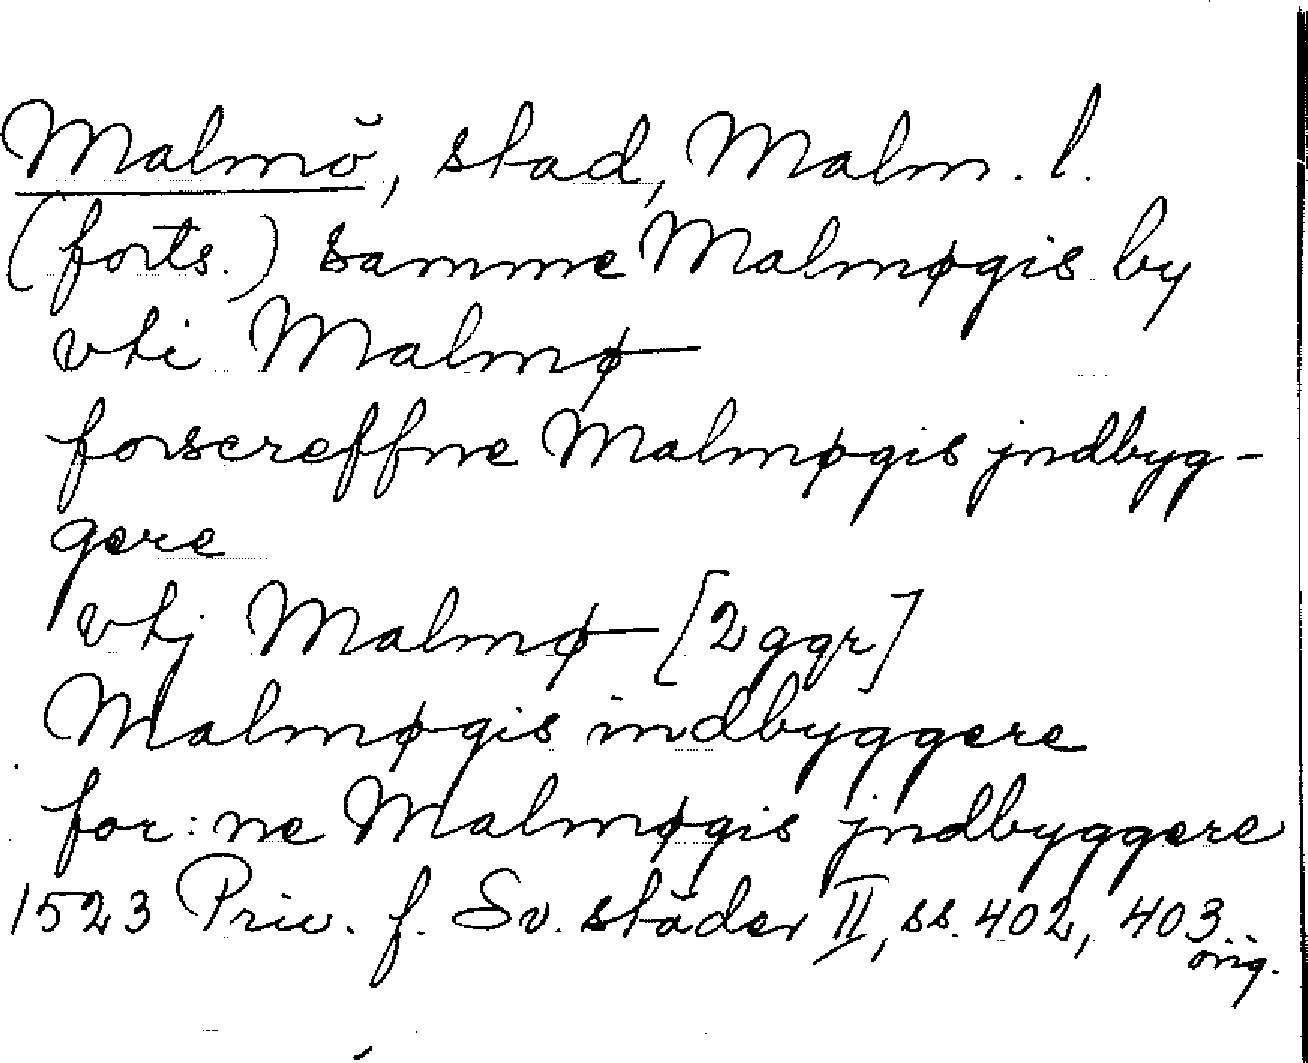 Malmö, stad, Malm. l.
(forts.) samme Malmøgis by
vti Malmø
forscreffne Malmøgis jndbyg-
gere
vtj Malmø [2 ggr]
Malmøgis indbyggere
for:ne Malmøgis jndbyggere
1523 Priv. f. Sv. städer II, ss. 402, 403
orig.